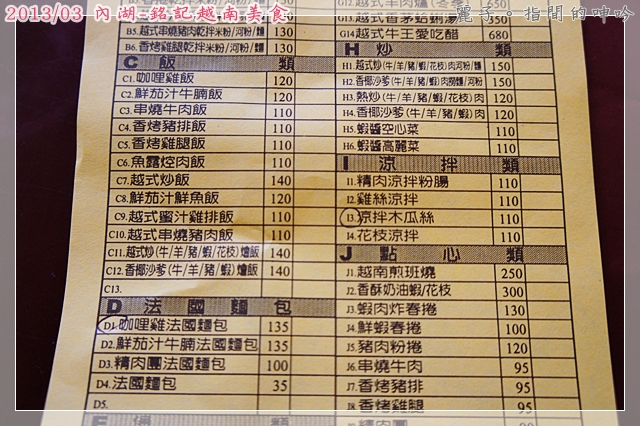 2013/03 內湖-銘記越南美食
麗子。指間的呻吟
B5.越式串燒豬肉乾拌米粉/河粉/麵 130
B6.香烤雞腿乾拌米粉/河粉/麵 130
C 飯 類
C1.咖哩雞飯 120
C2.鮮茄汁牛腩飯 120
C3.串燒牛肉飯 110
C4.香烤豬排飯 110
C5.香烤雞腿飯 110
C6.魚露焢肉飯 110
C7.越式炒飯 140
C8.鮮茄汁鮮魚飯 120
C9.越式蜜汁雞排飯 110
C10.越式串燒豬肉飯 110
C11.越式炒(牛/羊/豬/蝦/花枝)燴飯 140
C12.香椰沙爹(牛/羊/豬/蝦)燴飯 140
C13.
D 法國麵包
D1.咖哩雞法國麵包 135
D2.鮮茄汁牛腩法國麵包 135
D3.精肉團法國麵包 100
D4.法國麵包 35
D5.
G12.越式羊肉爐
G13.越式香茅蛤蜊 350
G14.越式牛王愛吃醋 680
H 炒 類
H1.越式炒(牛/羊/豬/蝦/花枝)肉河粉/麵 150
H2.香椰沙爹(牛/羊/豬/蝦)肉撈麵/河粉 150
H3.熱炒(牛/羊/豬/蝦/花枝)肉 120
H4.香椰沙爹(牛/羊/豬/蝦)肉 120
H5.蝦醬空心菜 110
H6.蝦醬高麗菜 110
I 涼拌類
I1.精肉涼拌粉腸 110
I2.雞絲涼拌 110
I3.涼拌木瓜絲 110
I4.花枝涼拌 110
J 點心類
J1.越南煎班燒 250
J2.香酥奶油蝦/花枝 300
J3.蝦肉炸春捲 130
J4.鮮蝦春捲 100
J5.豬肉粉捲 120
J6.串燒牛肉 95
J7.香烤豬排 95
J8.香烤雞腿 95